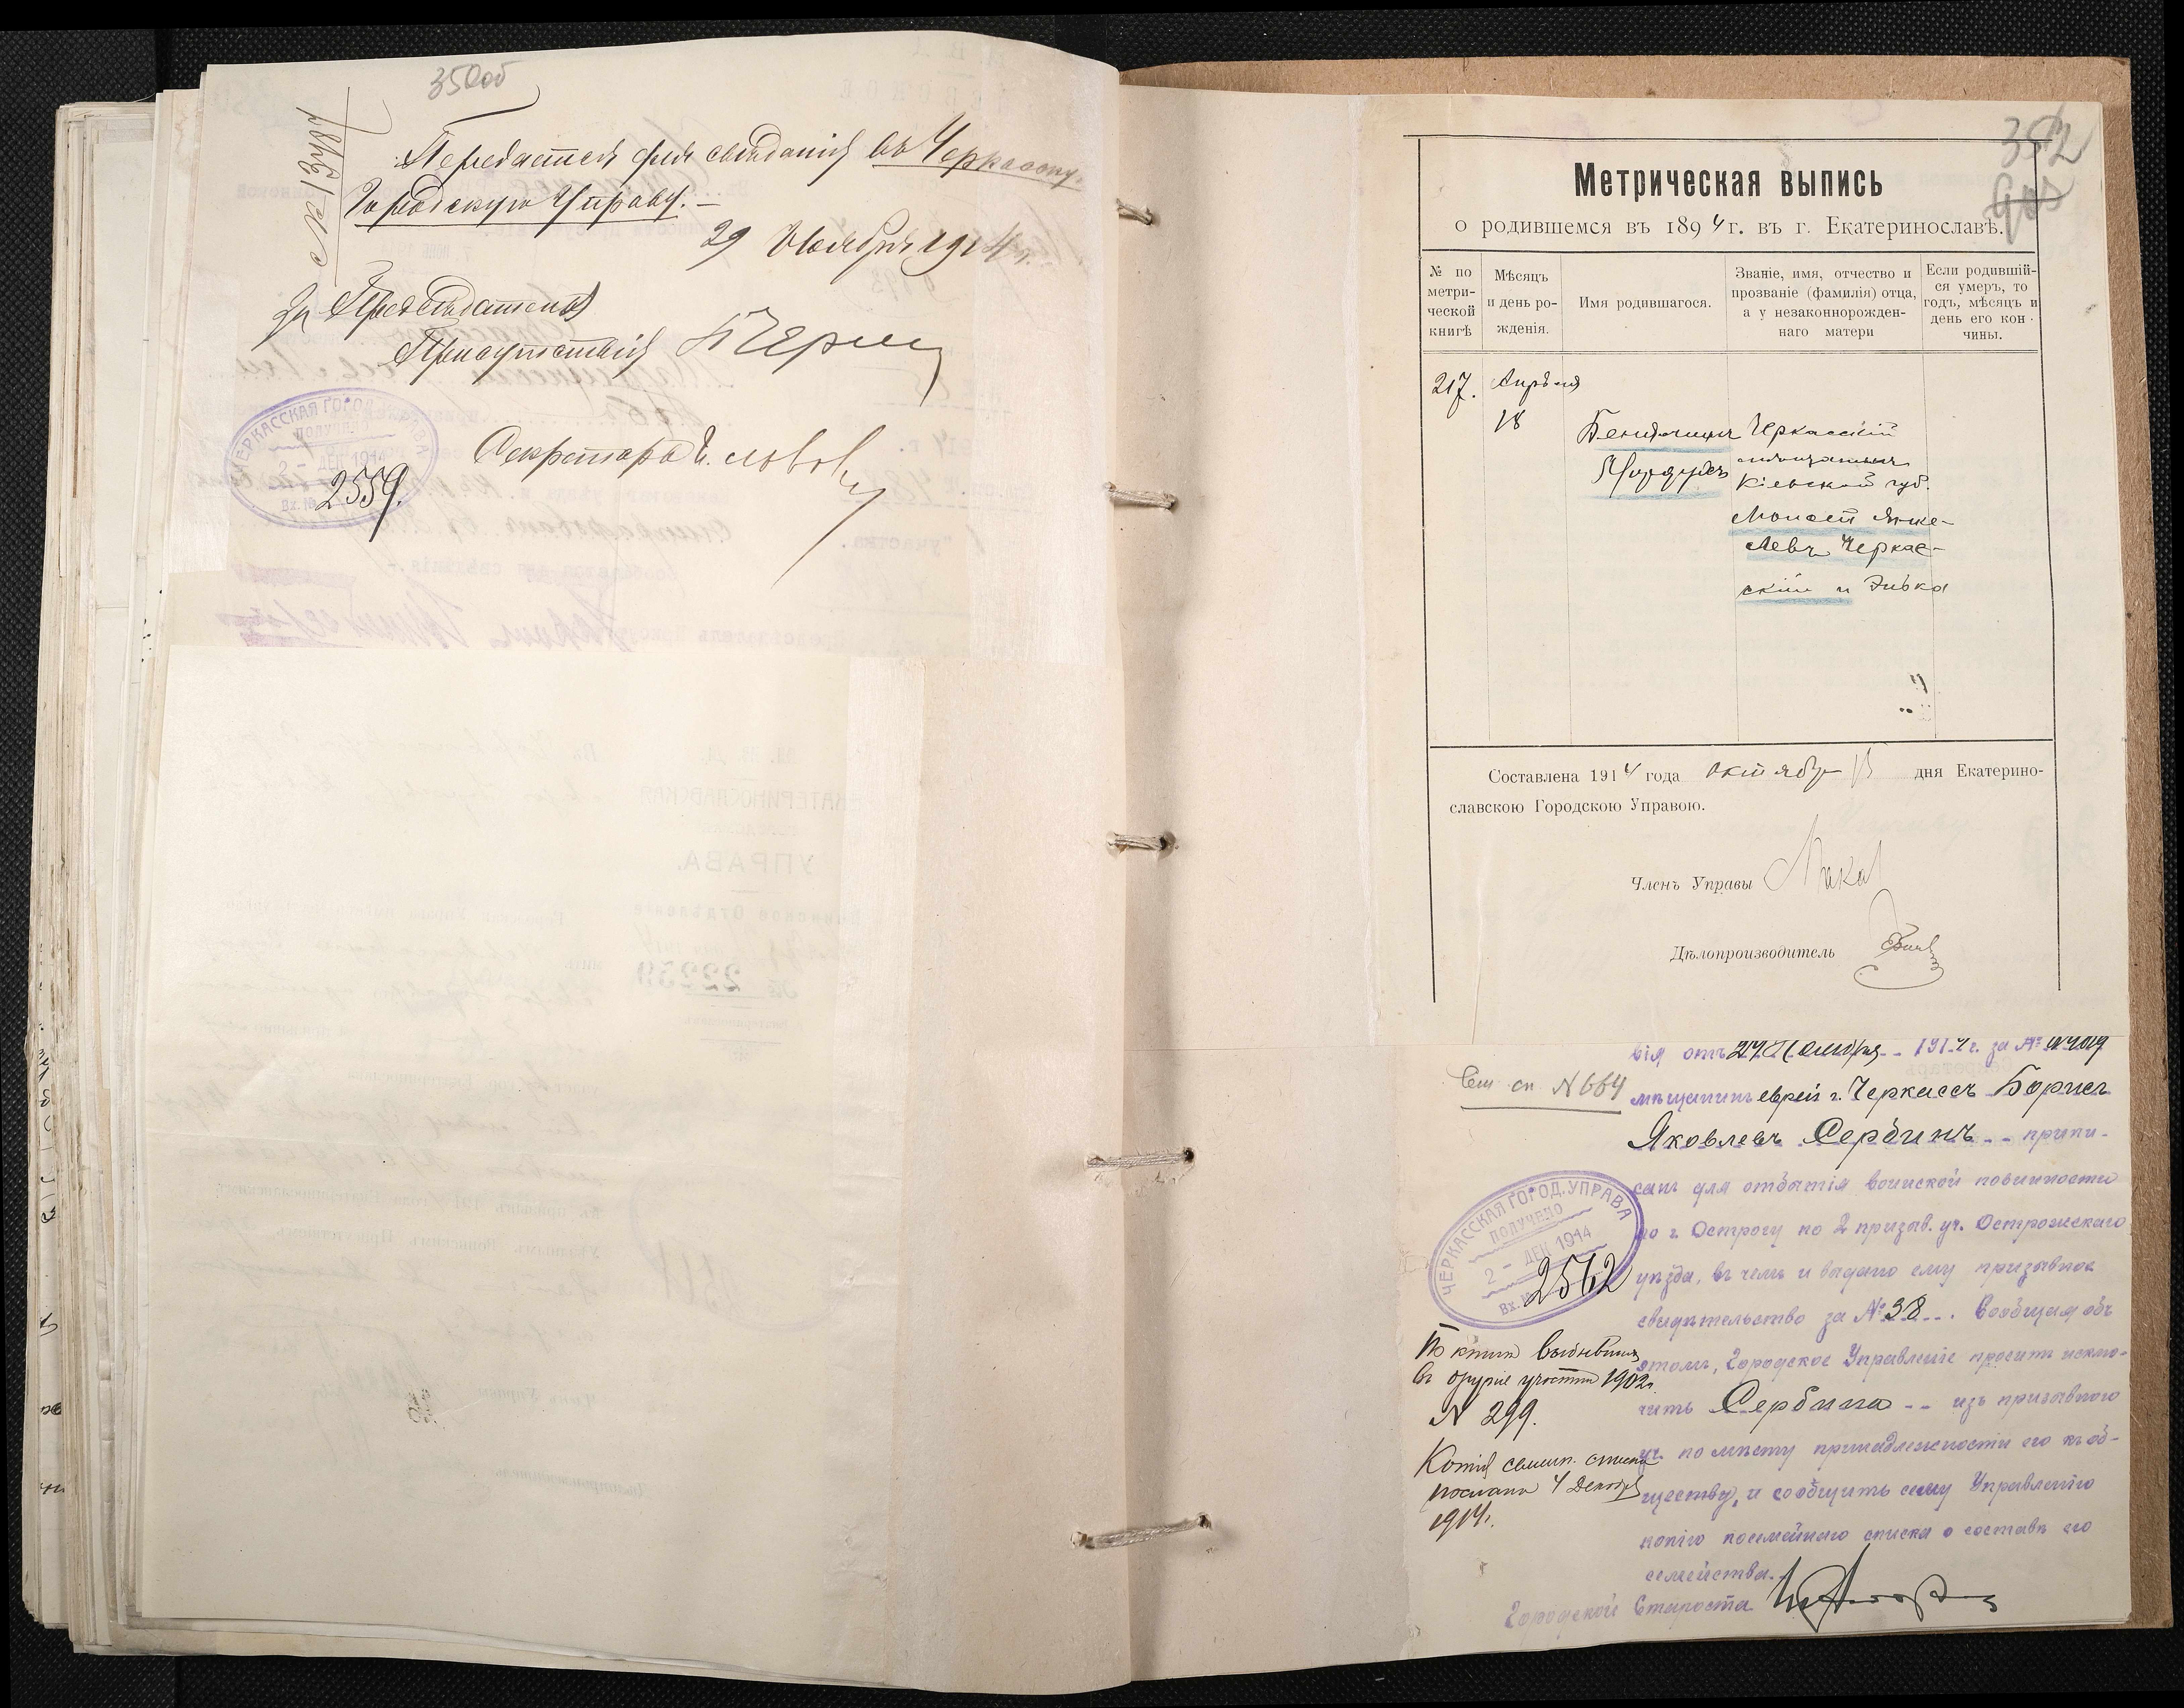 350об
№ 13417
Передается для свѣдѣнія въ Черкасскую
Городскую Управу. —
29 Ноября 1914 г.
За Предсѣдателя
Присутствія
Секретарь
ЧЕРКАССКАЯ ГОРОД. УПРАВА
ПОЛУЧЕНО
2 – ДЕК 1914
Вх. №
2559.
352
Метрическая выпись
о родившемся въ 1894 г. въ г. Екатеринославѣ.
№ по метри-ческой книгѣ
Мѣсяцъ и день ро-жденія.
Имя родившагося.
Званіе, имя, отчество и прозваніе (фамилія) отца, а у незаконнорожден-наго матери
Если родившій-ся умеръ, то годъ, мѣсяцъ и день его кон-чины.
217.
Апрѣля
18
Беніаминъ
Мордухъ
Черкасскій
мѣщанинъ
Кіевской губ.
Мопсей Янке-
левъ Черкас-
скій и Зивка
Составлена 1914 года Октября 13 дня Екатерино-
славскою Городскою Управою.
Членъ Управы
Дѣлопроизводитель
вія отъ 24 Ноября 1914 г. за №
Сем. сп. № 664
мѣщанинъ еврей г. Черкассъ Борисъ
Яковлевъ Сербинъ -- припи-
санъ для отбытія воинской повинности
по г. Острогу по 2 призыв. уч. Острожскаго
уѣзда, въ чемъ и выдано ему призывное
свидѣтельство за № 38 --. Сообщая объ
этомъ, Городское Управленіе проситъ исклю-
чить Сербина -- изъ призывного
уч. по мѣсту принадлежности его къ об-
ществу, и сообщить сему Управленію
копію посемейнаго списка о составѣ его
семейства.
Городской Староста
ЧЕРКАССКАЯ ГОРОД. УПРАВА
ПОЛУЧЕНО
2 – ДЕК 1914
Вх. №
2562
По книгѣ выбывшихъ
въ другіе участки 1902 г.
№ 299.
Копія семейн. списка
послана 4 Декабря
1914 г.